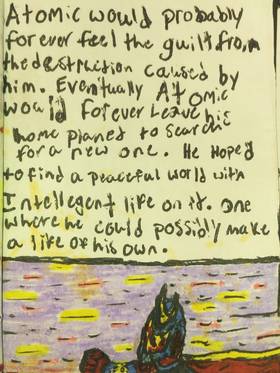 Atomic would probably
forever feel the guilt from
the destruction caused by
him. Eventually Atomic
would forever leave his
home planet to search
for a new one. He hoped
to find a peaceful world with
Intellegent life on it. one
where he could possibly make
a life of his own.